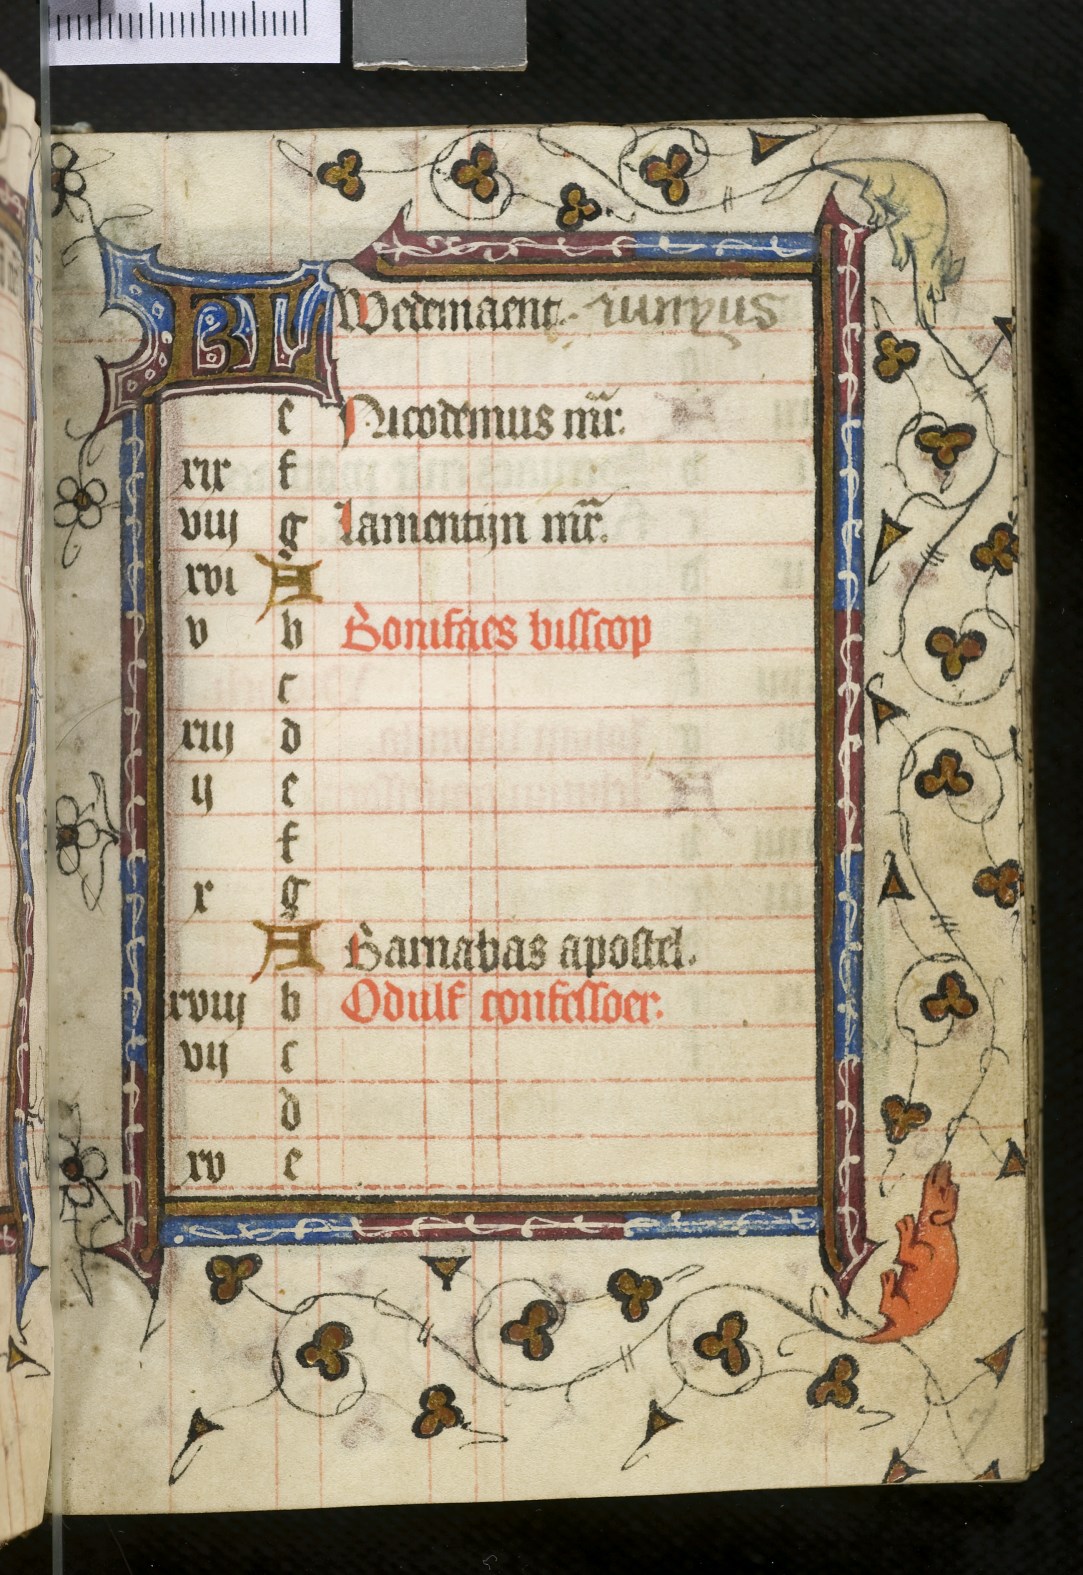 KL Wedemaent. iunyus
e Nicodemus mr̄.
xix f
viij g lamentijn mr̄.
xvi A
v b Bonifaes bisscop
c
xiij d
ij e
f
x g
A Barnabas apostel.
xviij b Odulf confessoer.
vij c
d
xv e